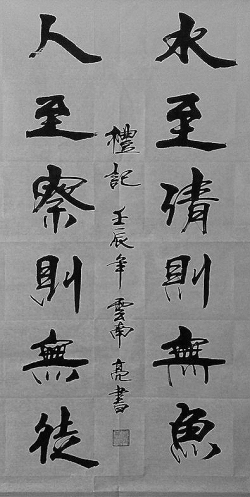 水至清則無魚
人至察則無徒
禮記 壬辰年 雲南 亮書